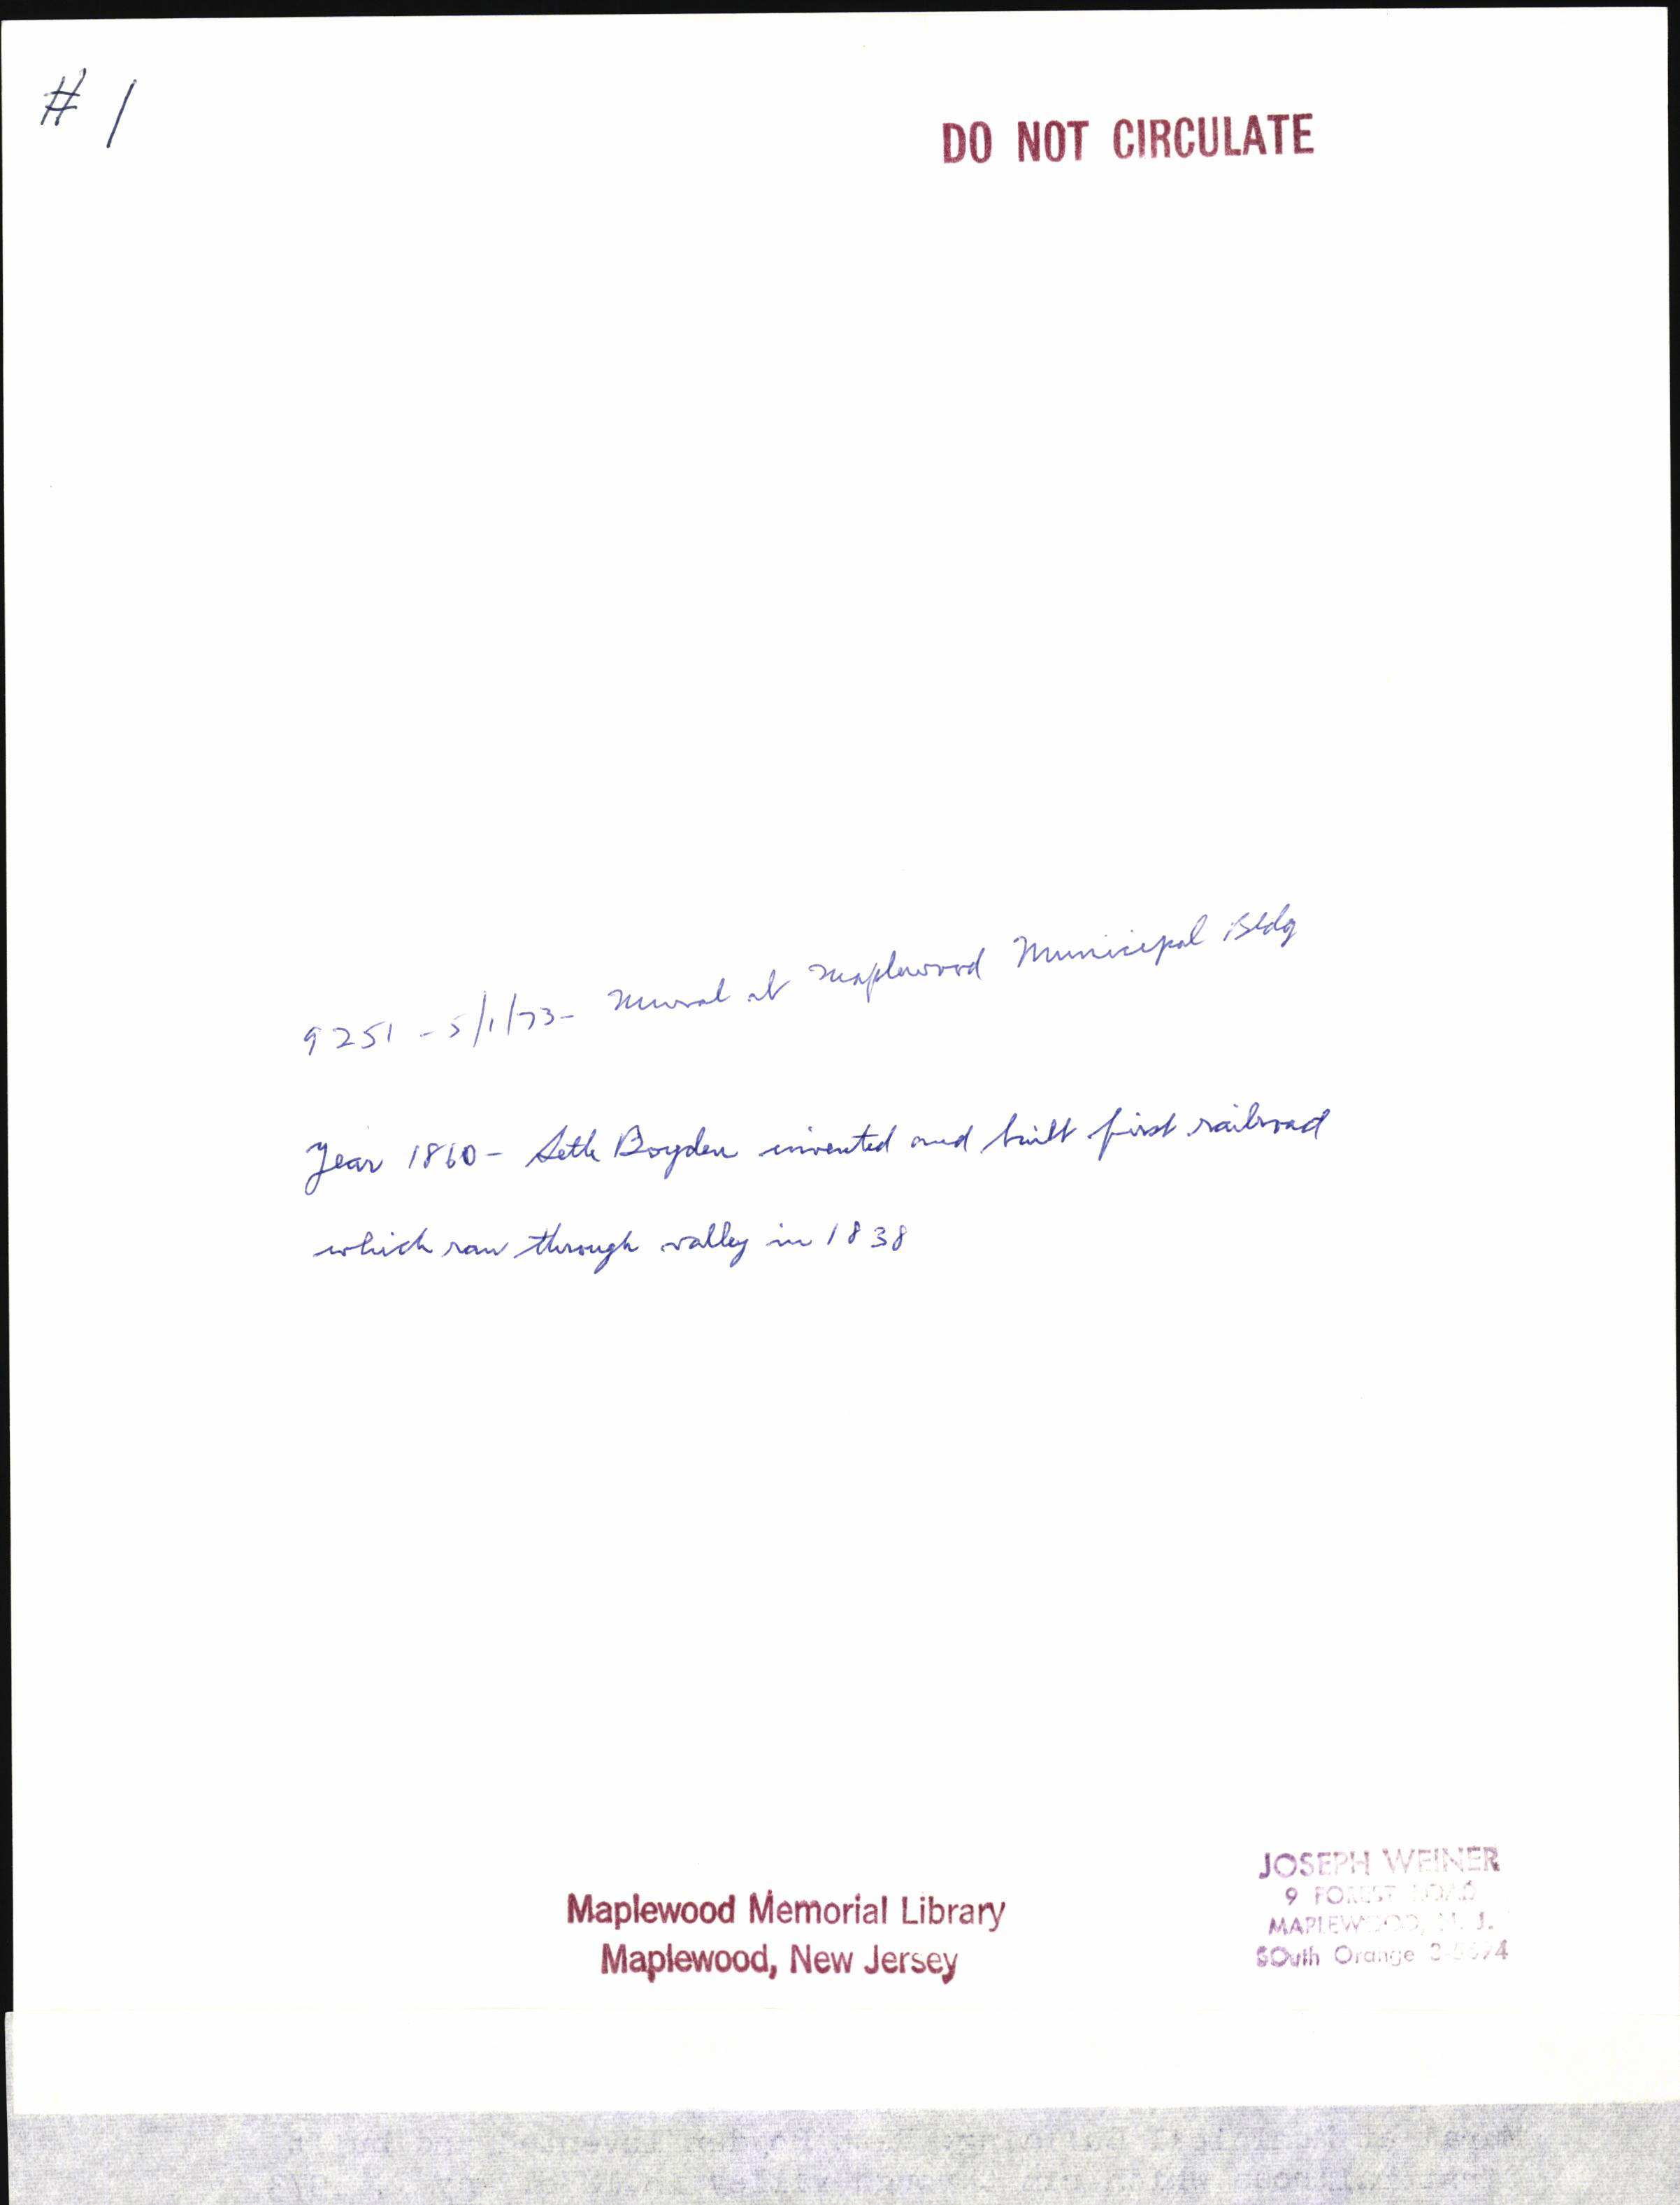 # 1
DO NOT CIRCULATE
9251 - 5/1/73 - Mural at Maplewood Municipal Bldg
Year 1860 - Seth Boyden invented and built first railroad
which ran through valley in 1838
Maplewood Memorial Library
Maplewood, New Jersey
JOSEPH WEINER
9 FOREST ROAD
MAPLEWOOD, N. J.
SOuth Orange